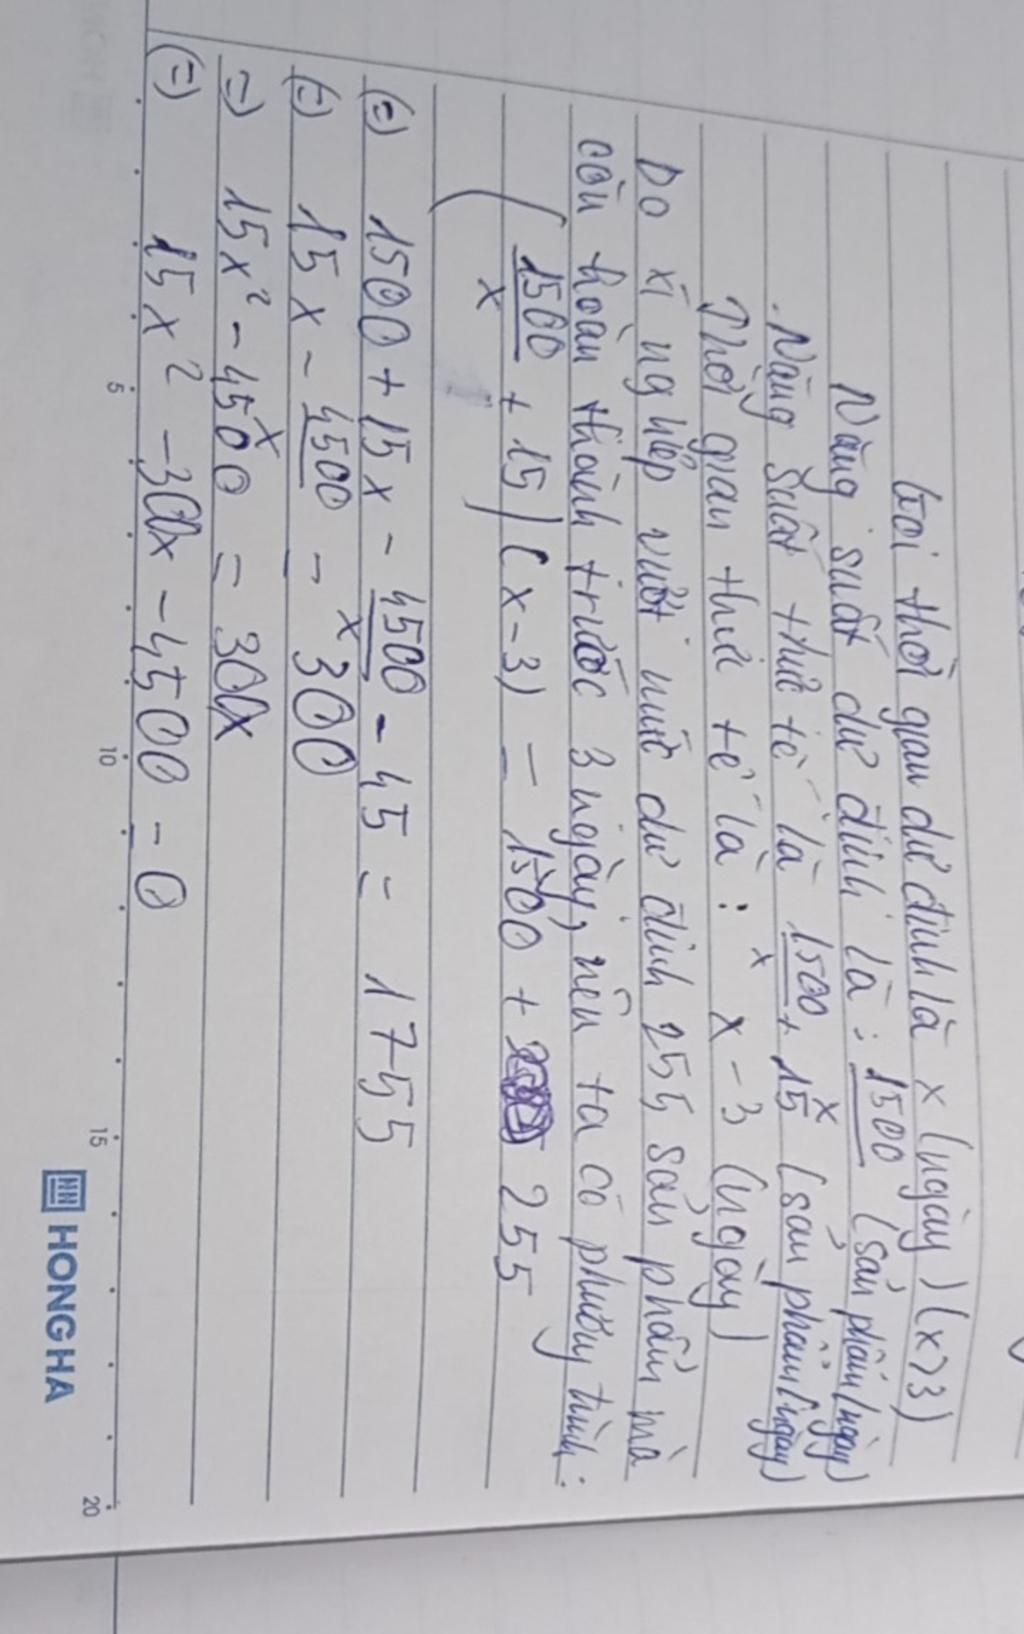 Gọi thời gian dự định là x (ngày) (x>3)
Năng suất dự định là: 1500/x (sản phẩm/ngày)
Năng suất thực tế là 1500/x + 15 (sản phẩm/ngày)
Thời gian thực tế là: x - 3 (ngày)
Do xí nghiệp vượt mức dự định 255 sản phẩm mà
còn hoàn thành trước 3 ngày, nên ta có phương trình:
(1500/x + 15)(x-3) = 1500 + 255
(=) 1500 + 15x - 4500/x - 45 = 1755
(=) 15x - 4500/x = 300
=) 15x² - 4500 = 300x
(=) 15x² - 300x - 4500 = 0
5 10 15 20
HONG HA